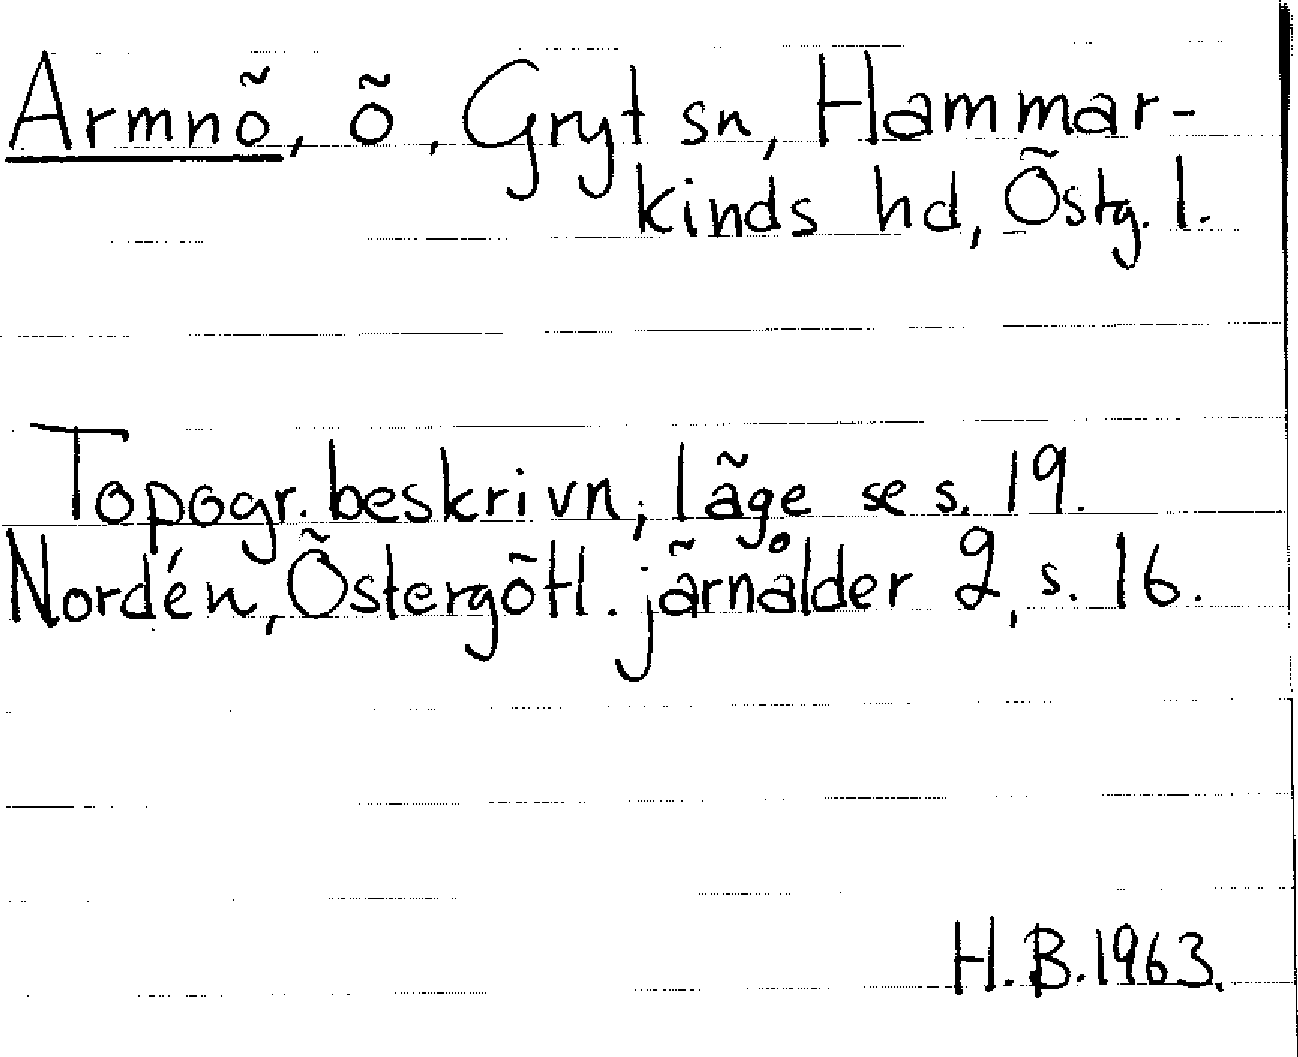 Armnö, ö, Gryt sn, Hammar-
kinds hd, Östg. l.
Topogr. beskrivn; läge se s. 19.
Nordén, Östergötl. järnålder 2, s. 16.
H.B. 1963.